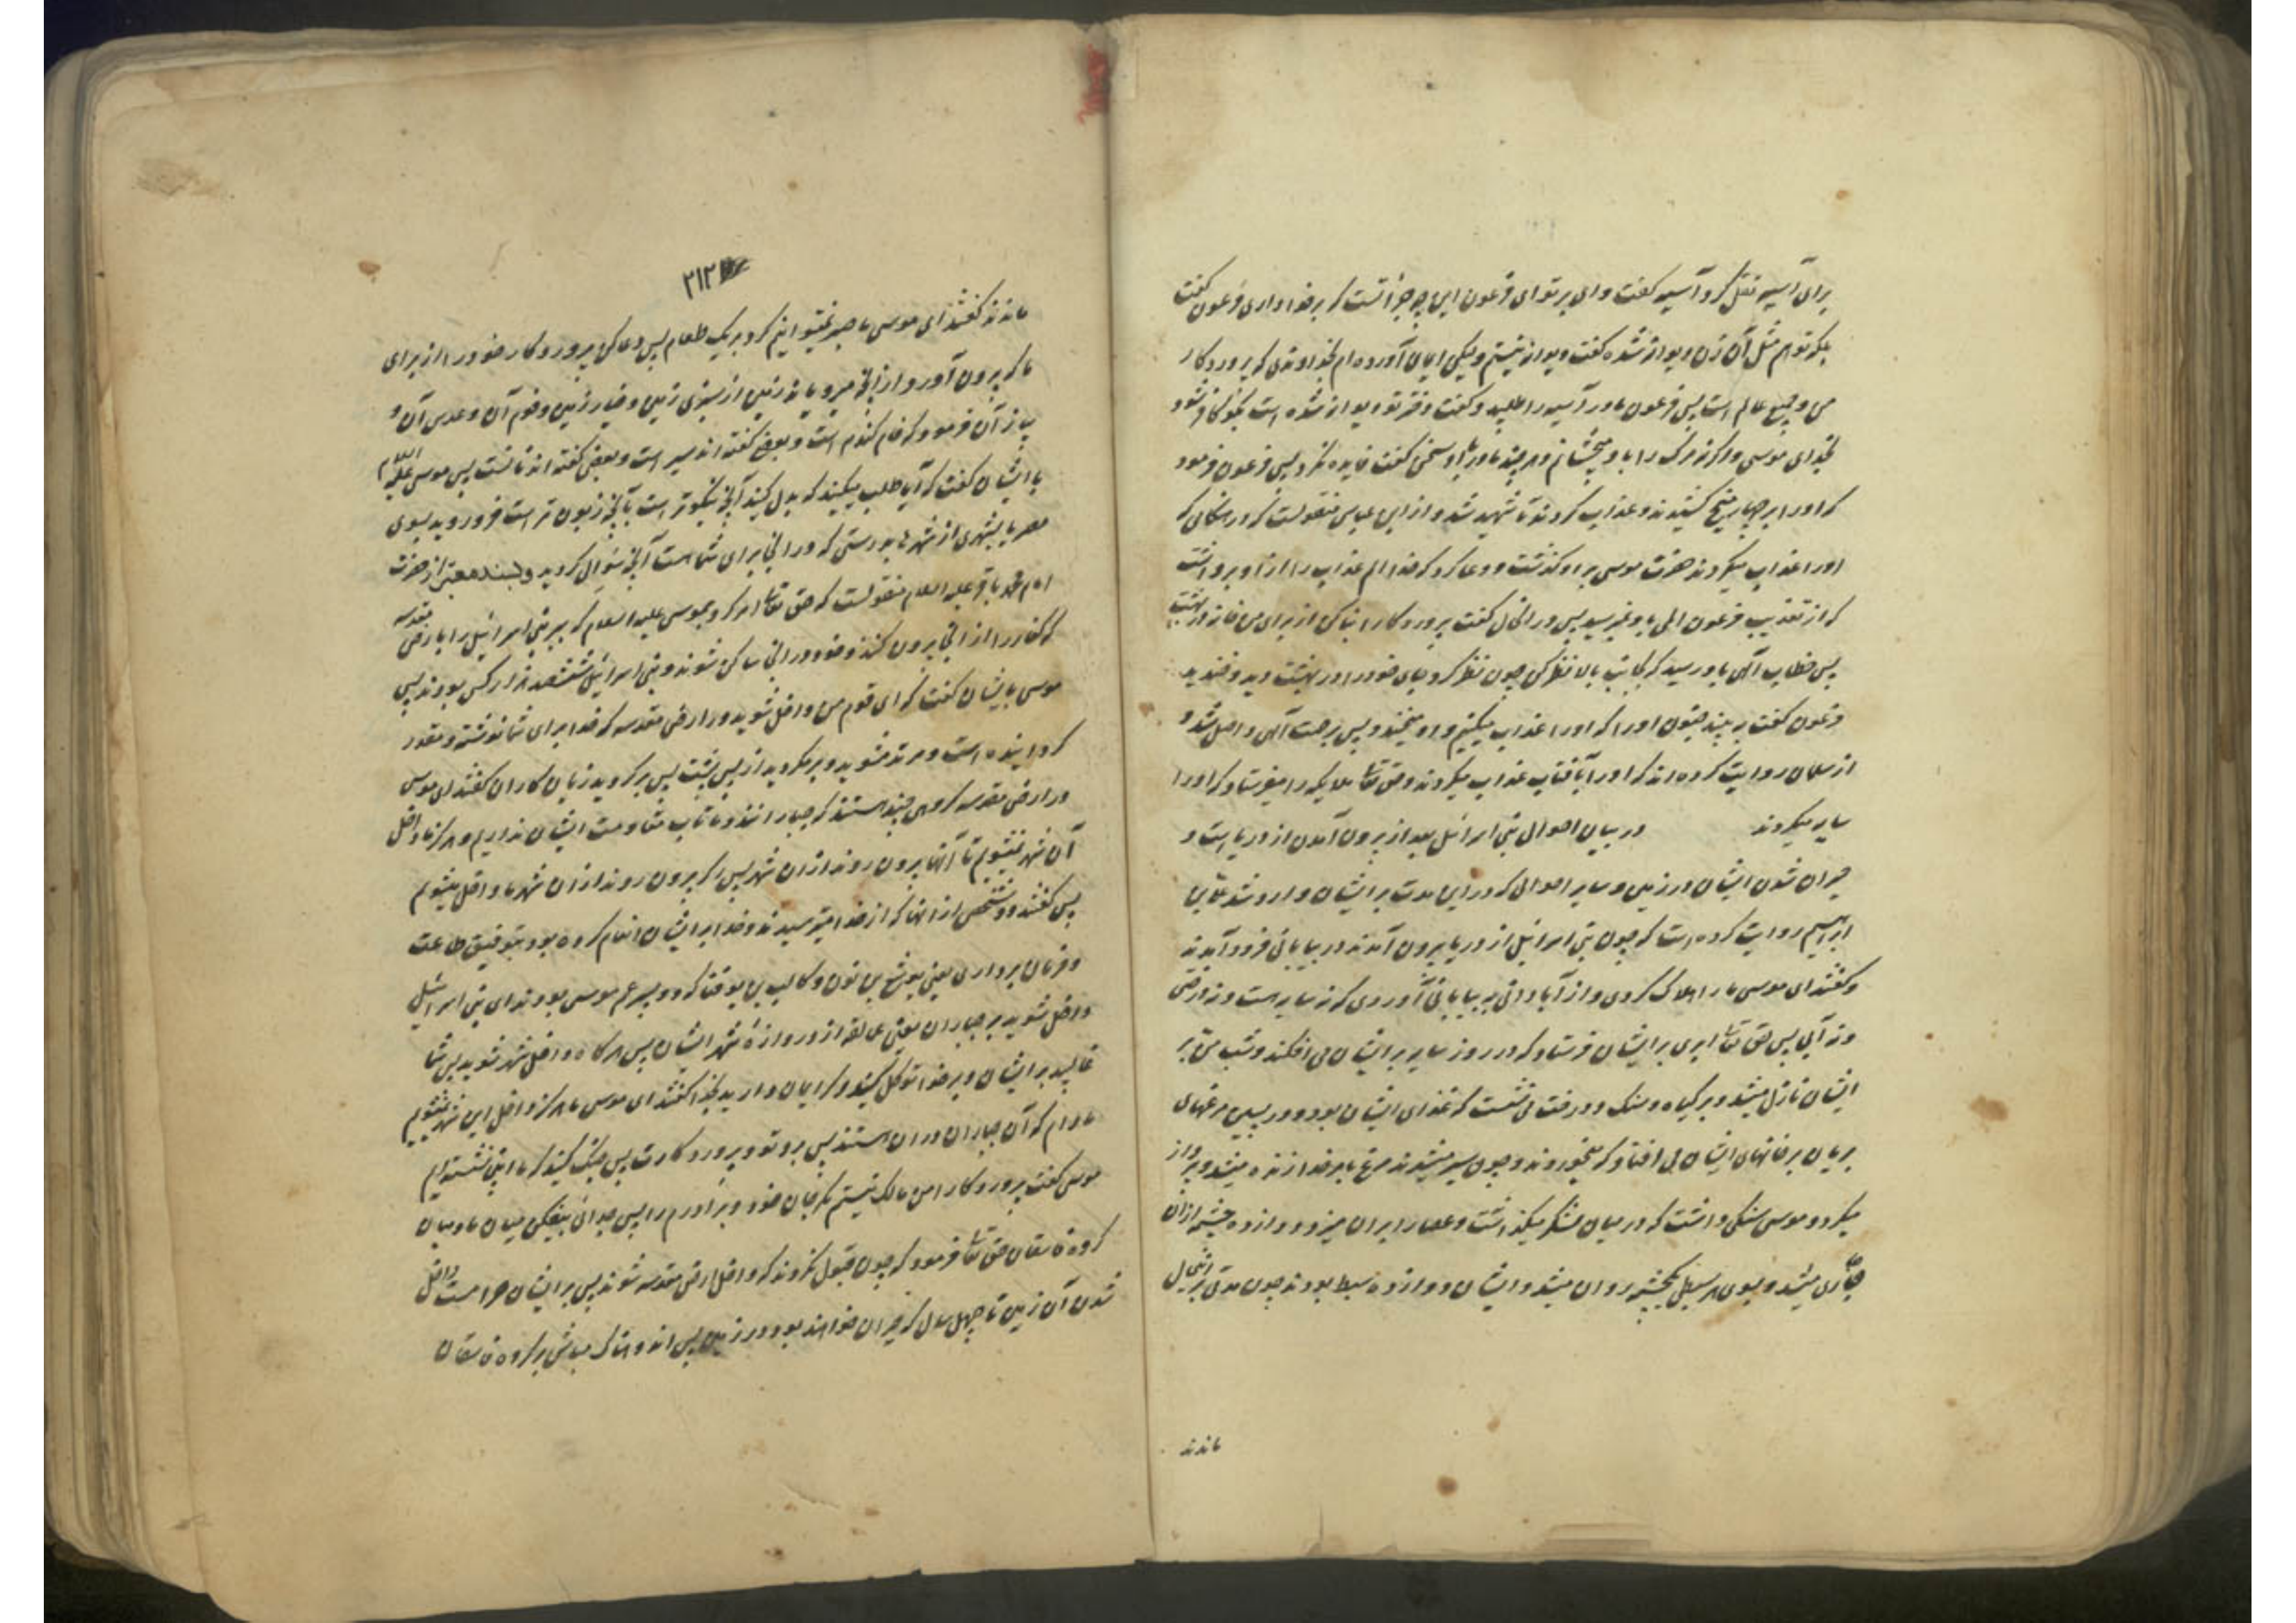 برای آسیه نقل کرد آسیه گفت وای بر تو ای فرعون این چه جرأتست که بر خدا داری فرعون گفت
مگر تو هم مثل آن زن دیوانه شده گفت دیوانه نیستم ولیکن ایمان آورده ام بخداوندی که پروردگار
من و جمیع عالم است پس فرعون مادر آسیه را طلبید و گفت دختر تو دیوانه شده است بگو کافر شود
بخدای موسی و اگر نه مرگ را باو میچشانم و هر چند مادر باو سخن گفت فایده نکرد پس فرعون فرمود
که او را بر چهار میخ کشیدند و عذاب کردند تا شهید شد و از ابن عباس منقولست که در هنگامی که
او را عذاب میکردند حضرت موسی بر او گذشت و دعا کرد که خدا الم عذاب را از او برداشت
که از تعذیب فرعون المی باو نمیرسید پس در انحال گفت پروردگارا بنا کن از برای من خانه در بهشت
پس خطاب الهی باو رسید که بجانب بالا نظر کن چون نظر کرد جای خود را در بهشت دید و خندید
فرعون گفت به بینید جنون او را که او را عذاب میکنیم و او میخندد پس برحمت الهی واصل شد و
از سلمان روایت کرده اند که او را بآفتاب عذاب میکردند و حق تعالی ملایکه را میفرستاد که او را
سایه میکردند در بیان احوال بنی اسرائیل بعد از بیرون آمدن از دریا است و
حیران شدن ایشان در زمین و سایر احوالی که در این مدت بر ایشان وارد شد علی بن
ابراهیم روایت کرده است که چون بنی اسرائیل از دریا بیرون آمدند در بیابانی فرود آمدند
و گفتند ای موسی ما را هلاک کردی و از آبادانی به بیابانی آوردی که نه سایه هست و نه درختی
و نه آبی پس حق تعالی ابری بر ایشان فرستاد که در روز سایه بر ایشان می افکند و شب من بر
ایشان نازل میشد و بر گیاه و سنگ و درخت می نشست که غذای ایشان بود و در پسین مرغهای
بریان بر خانهای ایشان می افتاد که میخوردند و چون سیر میشدند مرغ بامر خدا زنده میشد و پرواز
میکرد و موسی سنگی داشت که در میان لشکر میگذاشت و عصا را بر آن میزد و دوازده چشمه از آن
جاری میشد و بسوی هر سبطی یکچشمه روان میشد و ایشان دوازده سبط بودند چون مدتی برین حال
ماندند
۲۱۲
ماندند گفتند ای موسی ما صبر نمیتوانیم کرد بر یک طعام پس دعا کن پروردگار خود را از برای
ما که بیرون آورد از آنچه میرویاند زمین از سبزی زمین و خیار زمین و فوم آن و عدس آن و
پیاز آن فرمود که فام گندم است و بعضی گفته اند سیر است و بعضی گفته اند نانست پس موسی علیه السلام
با ایشان گفت که آیا طلب میکنید که بدل کنید آنچه نیکوتر است بآنچه زبون تر است فرو روید بسوی
مصر یا بشهری از شهرها بدرستی که در آنجا برای شما است آنچه سؤال کردید و بسند معتبر از حضرت
امام محمد باقر علیه السلام منقولست که حق تعالی امر کرد بموسی علیه السلام که ببر بنی اسرائیل را بارض مقدسه
که کفار را از آنجا بیرون کنند و خود در آنجا ساکن شوند و بنی اسرائیل ششصد هزار کس بودند پس
موسی بایشان گفت که ای قوم من داخل شوید در ارض مقدسه که خدا برای شما نوشته و مقدر
گردانیده است و مرتد مشوید و بر مگردید از پس پشت پس برگردید زیان کاران گفتند ای موسی
در ارض مقدسه گروهی چند هستند که جبارانند و ما تاب مقاومت ایشان نداریم و هرگز ما داخل
آن شهر نمیشویم تا آنها بیرون روند از آن شهر پس اگر بیرون روند از آن شهر ما داخل میشویم
پس گفتند دو شخص از آنها که از خدا میترسیدند و خدا بر ایشان انعام کرده بود بتوفیق طاعت
و فرمان برداری یعنی یوشع بن نون و کالب بن یوقنا که دو پسر عم موسی بودند ای بنی اسرائیل
داخل شوید بر جباران یعنی عمالقه از دروازه شهر ایشان پس هر گاه داخل شهر شوید پس شما
غالبید بر ایشان و بر خدا توکل کنید اگر ایمان دارید بخدا گفتند ای موسی ما هرگز داخل این شهر نمیشویم
مادام که آن جباران در آن هستند پس برو تو و پروردگارت پس جنگ کنید که ما اینجا نشسته ایم
موسی گفت پروردگارا من مالک نیستم مگر جان خود و برادرم را پس جدائی بیفکن میان ما و میان
گروه فاسقان حق تعالی فرمود که چون قبول نکردند که داخل ارض مقدسه شوند پس بر ایشان حرامست داخل
شدن آن زمین تا چهل سال که حیران خواهند بود در زمین پس اندوهناک مباش بر گروه فاسقان